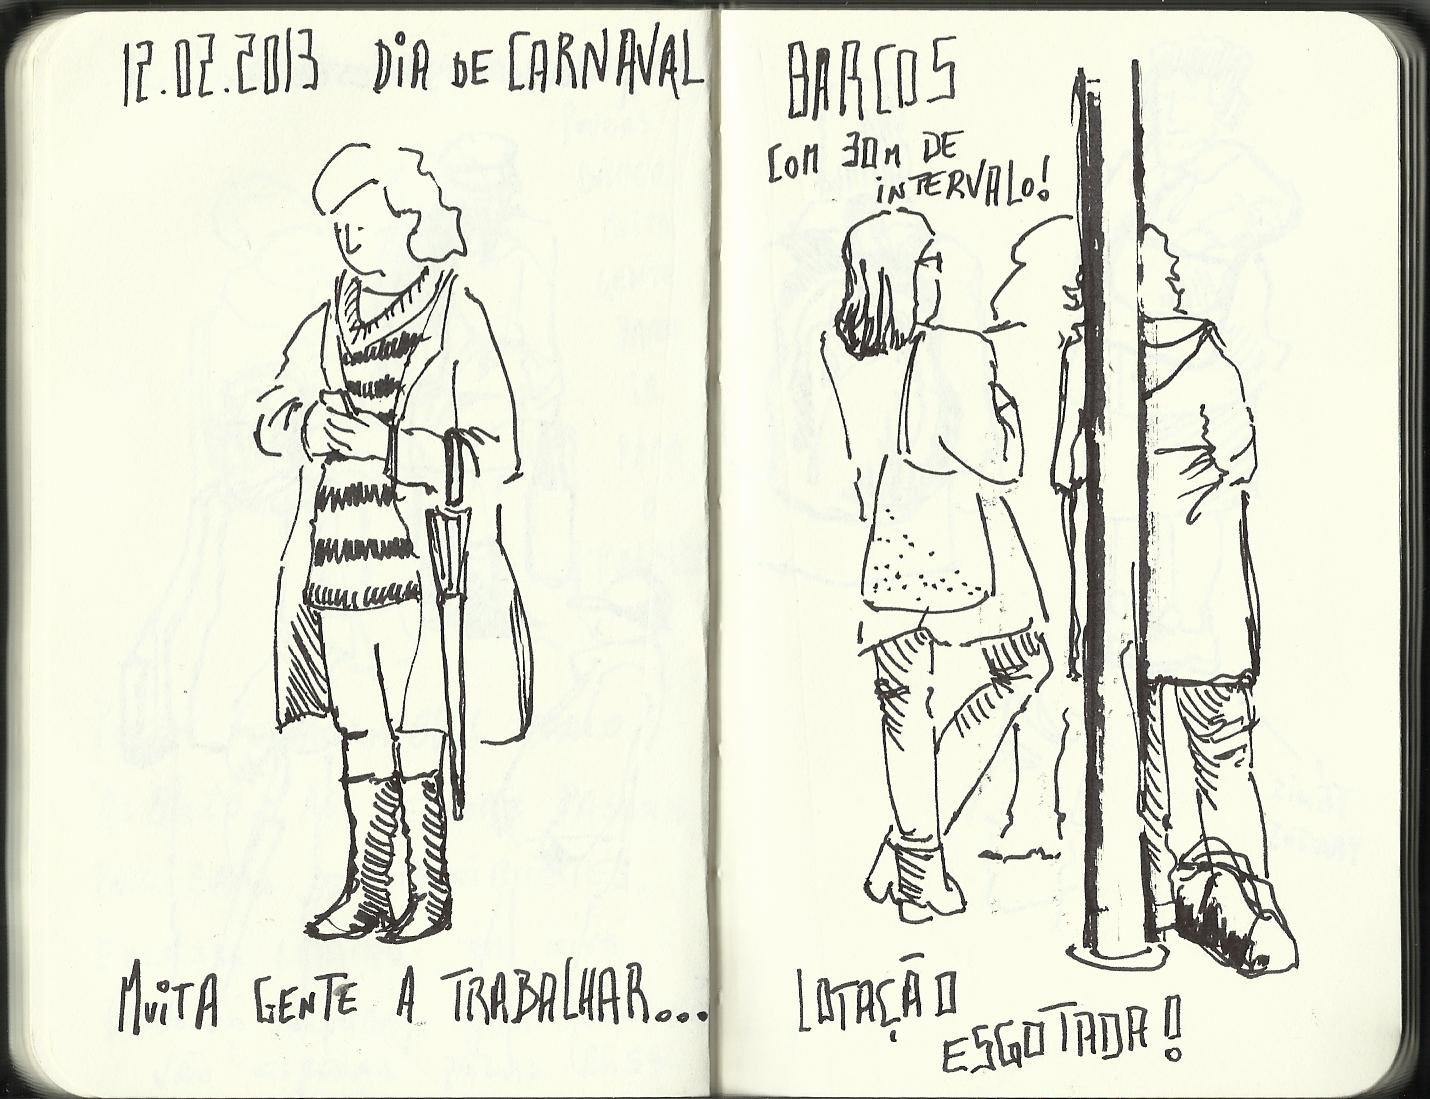 12.02.2013 DiA DE CARNAVAL
MUiTA GENTE A TRABALHAR...
BARCOS
COM 30M DE
iNTERVALO!
LOTAÇÃO
ESGOTADA!